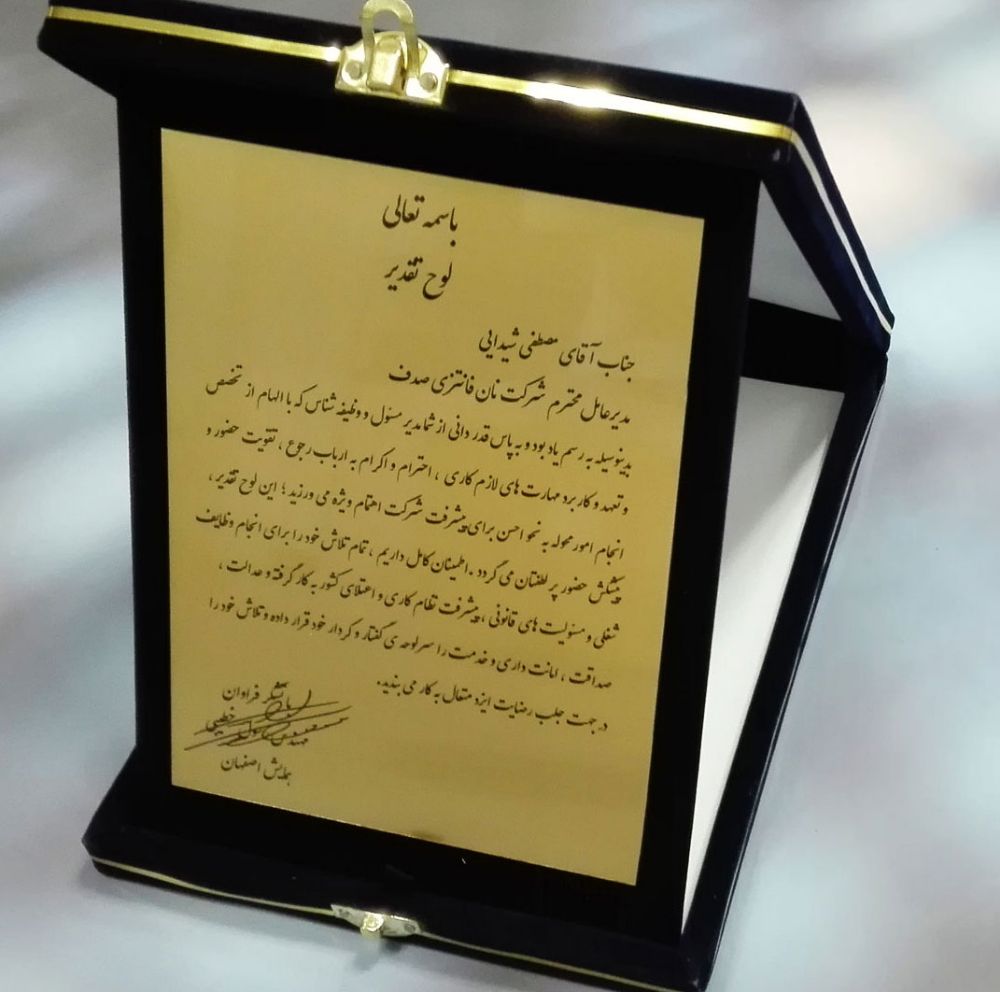 باسمه تعالی
لوح تقدیر
جناب آقای مصطفی شیدایی
مدیرعامل محترم شرکت نان فانتزی صدف
بدینوسیله به رسم یادبود و به پاس قدردانی از شما مدیر مسئول و وظیفه شناس که با الهام از تخصص
و تعهد و کاربرد مهارت های لازم کاری ، احترام و اکرام به ارباب رجوع ، تقویت حضور و
انجام امور محوله به نحو احسن برای پیشرفت شرکت اهتمام ویژه می ورزید ؛ این لوح تقدیر ،
پیشکش حضور پر لطفتان می گردد . اطمینان کامل داریم ، تمام تلاش خود را برای انجام وظایف
شغلی و مسئولیت های قانونی ، پیشرفت نظام کاری و اعتلای کشور به کار گرفته و عدالت ،
صداقت ، امانت داری و خدمت را سرلوحه ی گفتار و کردار خود قرار داده و تلاش خود را
در جهت جلب رضایت ایزد متعال به کار می بندید.
با تشکر فراوان
مهندس خطیبی
همایش اصفهان